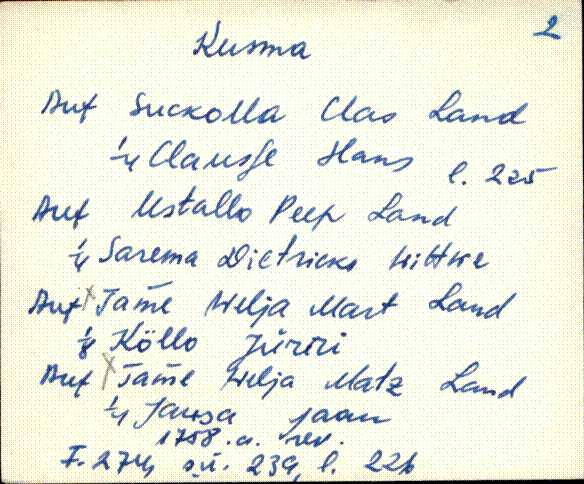 2
Kusma
Auf Suckolla Clas Land
1/4 Clausse Hans l. 225
Auf Ustallo Peep Land
1/4 Sarema Dietricks Wittwe
Auf Tam̄e Welja Mart Land
1/8 Köllo Jürri
Auf Tam̄e Welja Matz Land
1/4 Jaan
1758. a. rev.
F. 274, s.ü. 239, l. 226